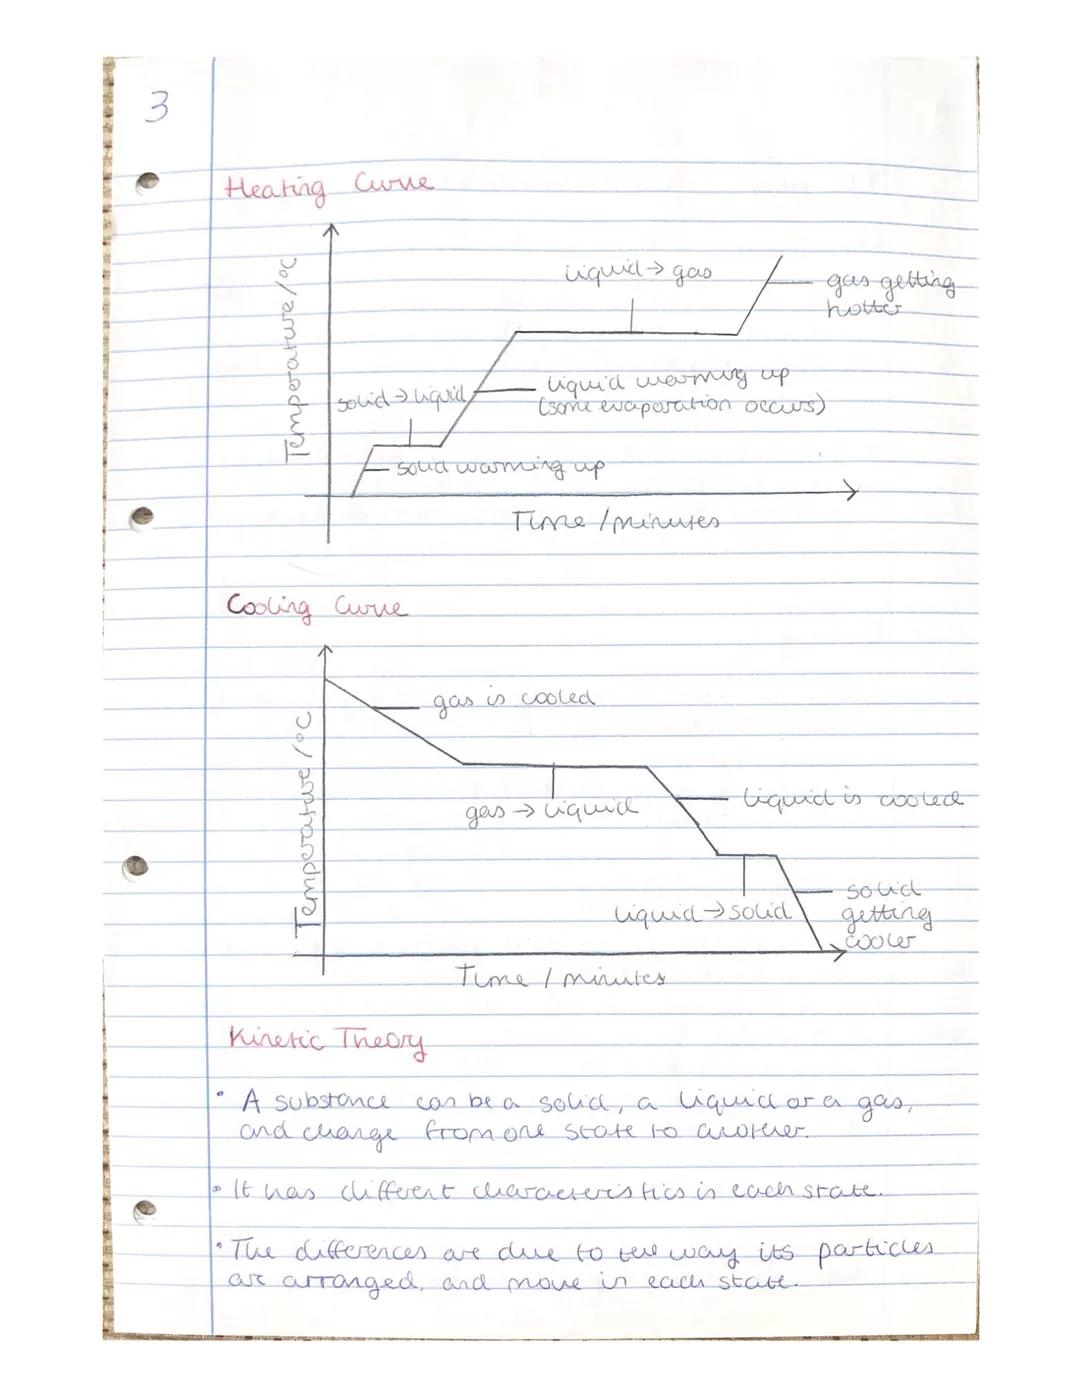 3
Heating Curve
Temperature/°C
liquid → gas
gas getting
hotter
solid → liquid
liquid warming up
(some evaporation occurs)
solid warming up
Time / minutes
Cooling Curve
Temperature /°C
gas is cooled
gas → liquid
liquid is cooled
liquid → solid
solid
getting
cooler
Time / minutes
Kinetic Theory
• A substance can be a solid, a liquid or a gas,
and change from one state to another.
• It has different characteristics is each state.
• The differences are due to the way its particles
are arranged, and move in each state.